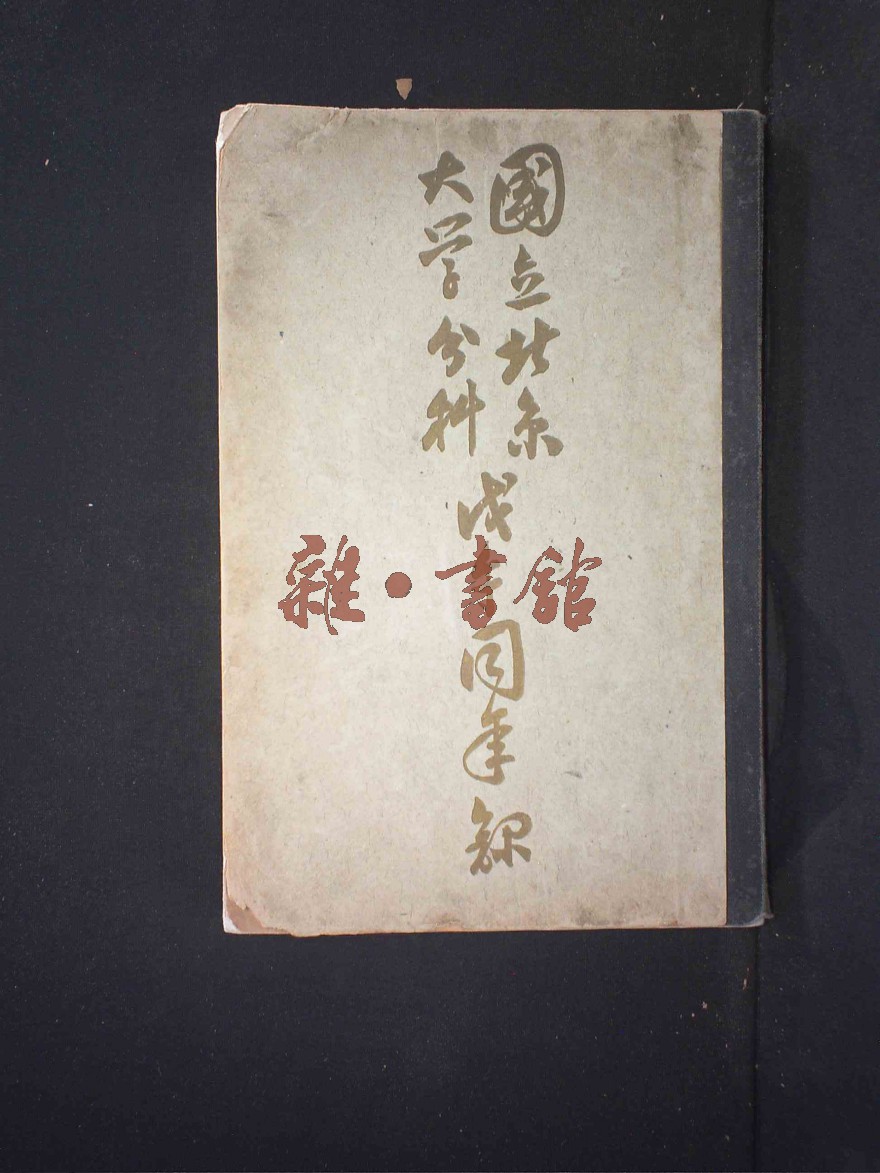 國立北京
大学分科
戊
同年録
雜·書館